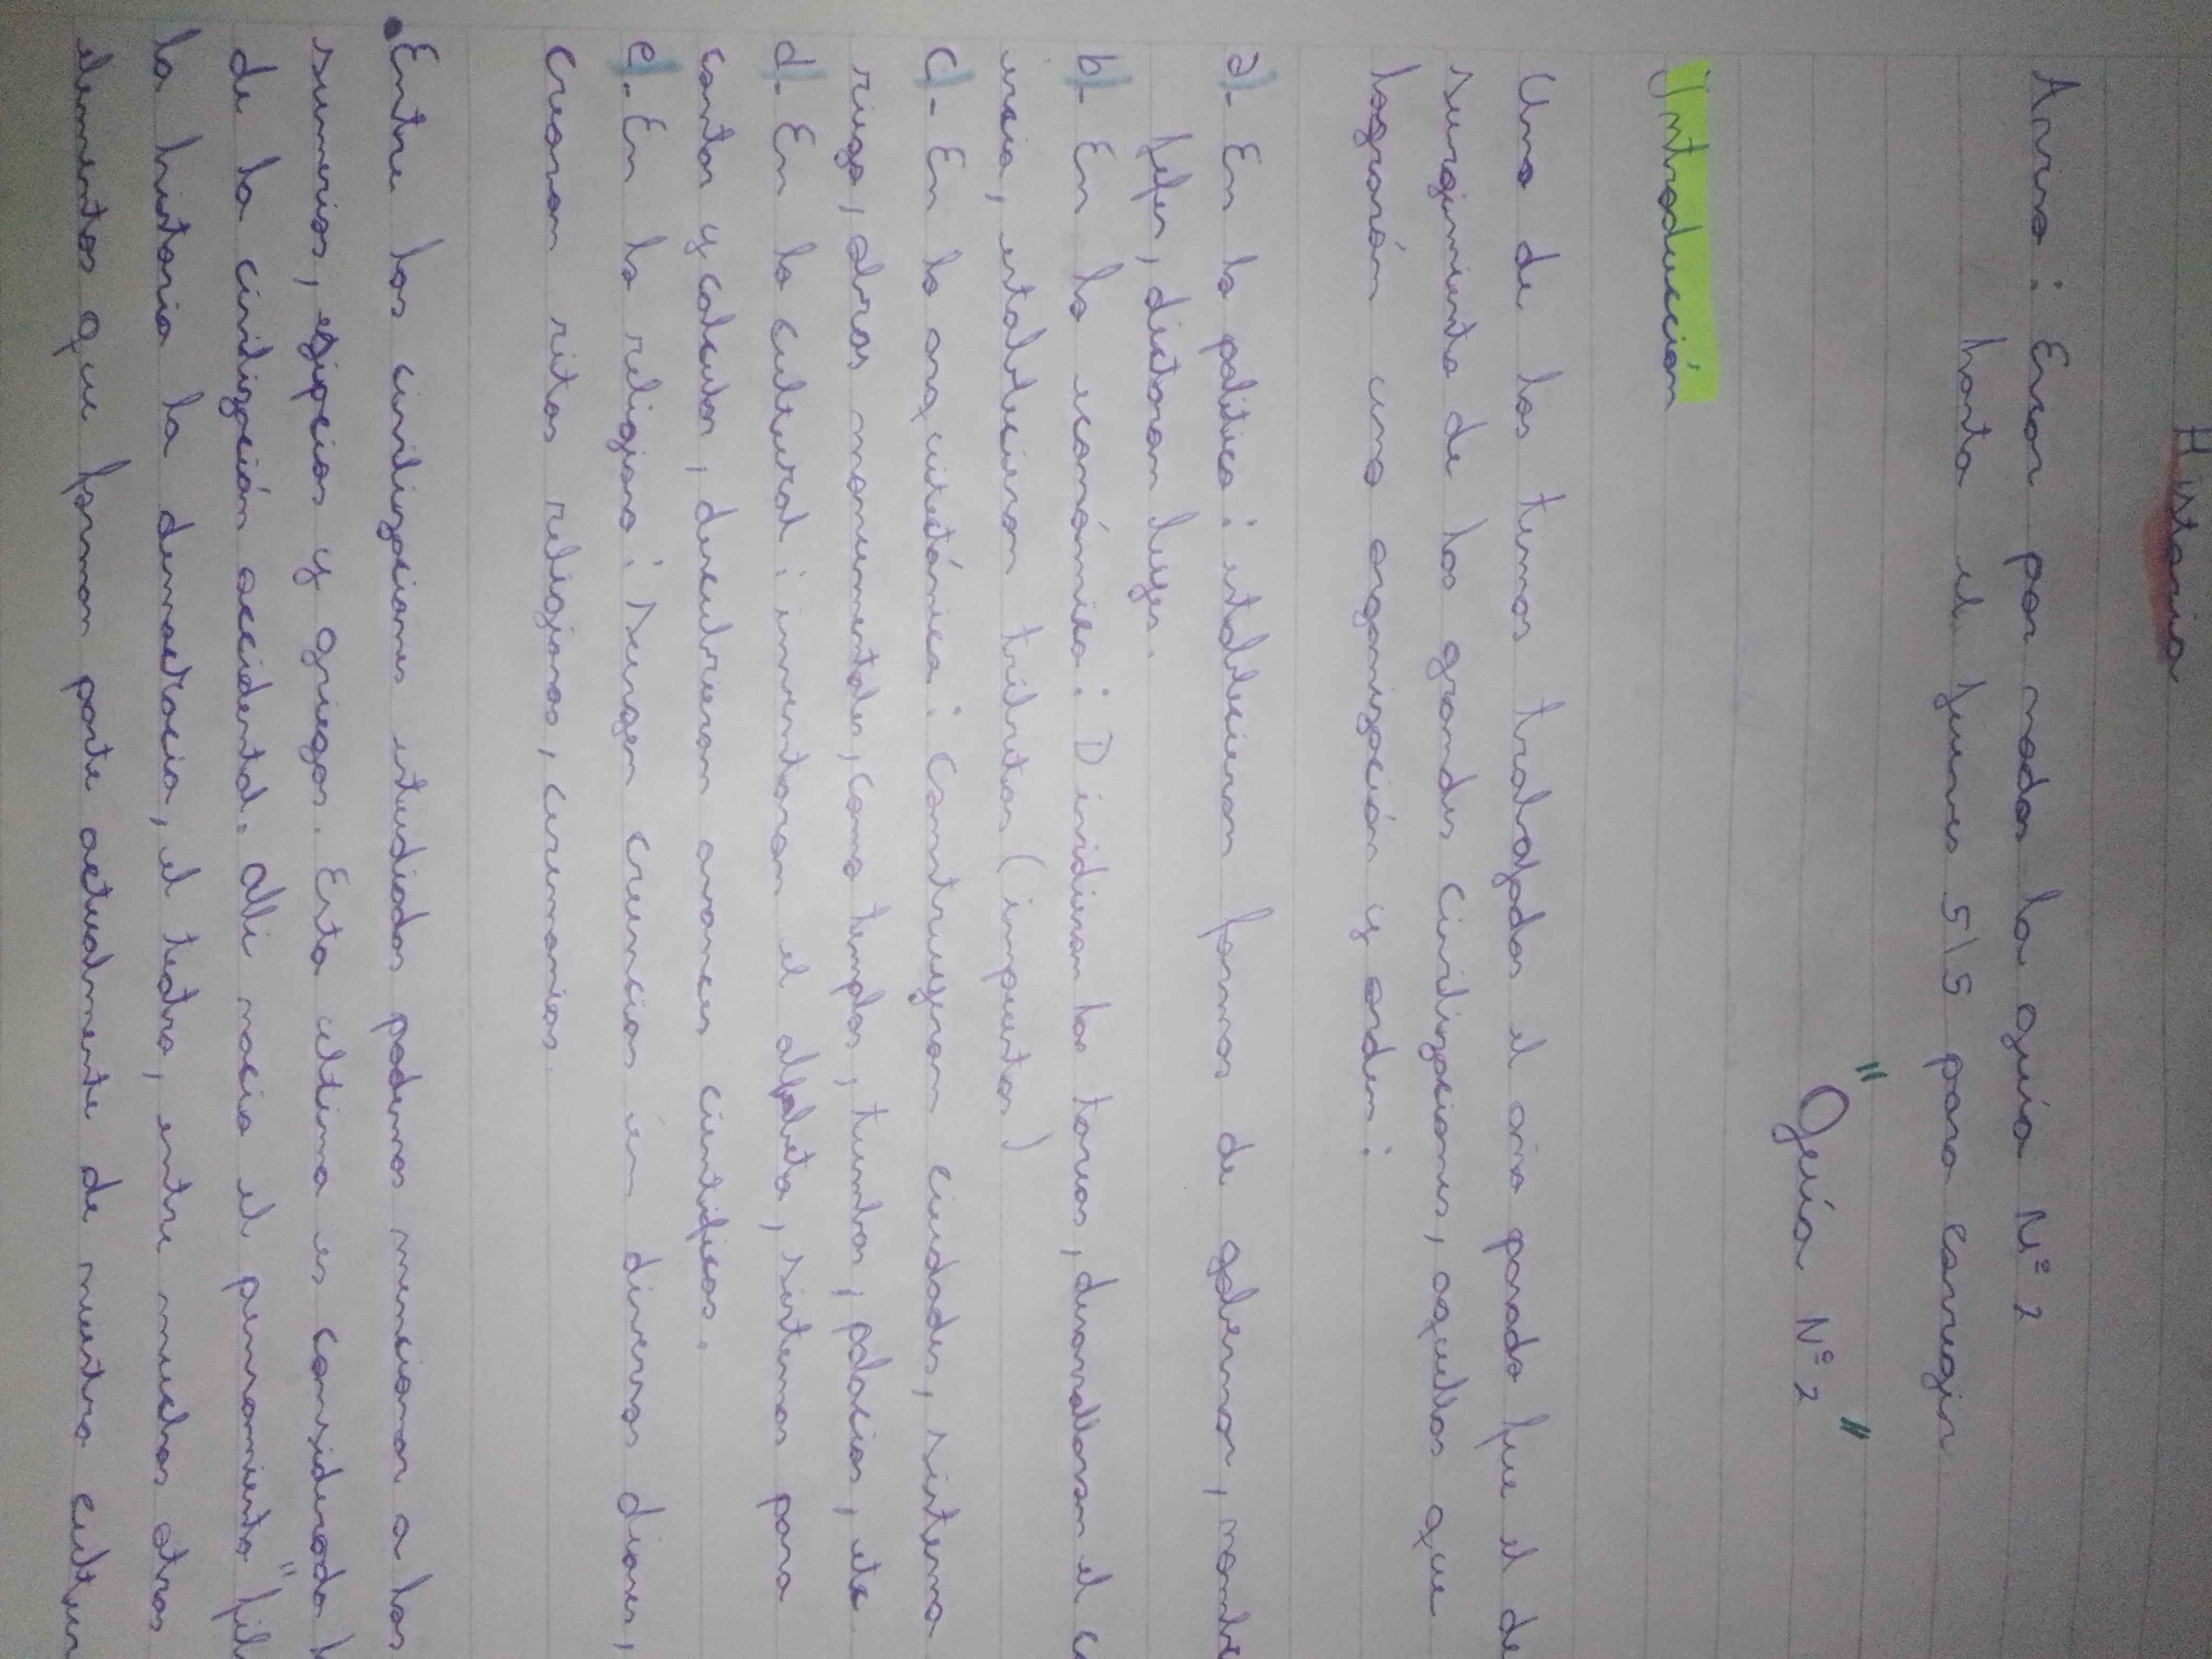 Historia
Aviso: Enviar por modos la guía Nº 2
hasta el jueves 5\5 para corregir
"Guía Nº 2"
Introducción
Uno de los temas trabajados el año pasado fue el de
surgimiento de las grandes civilizaciones, aquellas que
lograrón una organización y orden:
a)- En la política: establecieron formas de gobernar,
jefes, dictaron leyes.
b)- En lo económico: Dividieron las tareas, desarrollaron el
establecieron tributos (impuestos)
c)- En lo arquitectónico: Construyeron ciudades, sistema
riego, obras monumentales, como templos, tumbas, palacios, etc.
d)- En lo cultural: inventaron el alfabeto, sistemas para
contar y calcular, descubrieron avances cientificos.
e)- En lo religioso: Surgen creencias en diversos dioses,
crearon ritos religiosos, ceremonias.
• Entre las civilizaciones estudiadas podemos mencionar a los
sumerios, egipcios y griegos. Esta ultima es considerada
de la civilización occidental. Alli nacio el pensamiento
la historia la democracia, el teatro, entre muchos otros
elementos que forman parte actualmente de nuestra